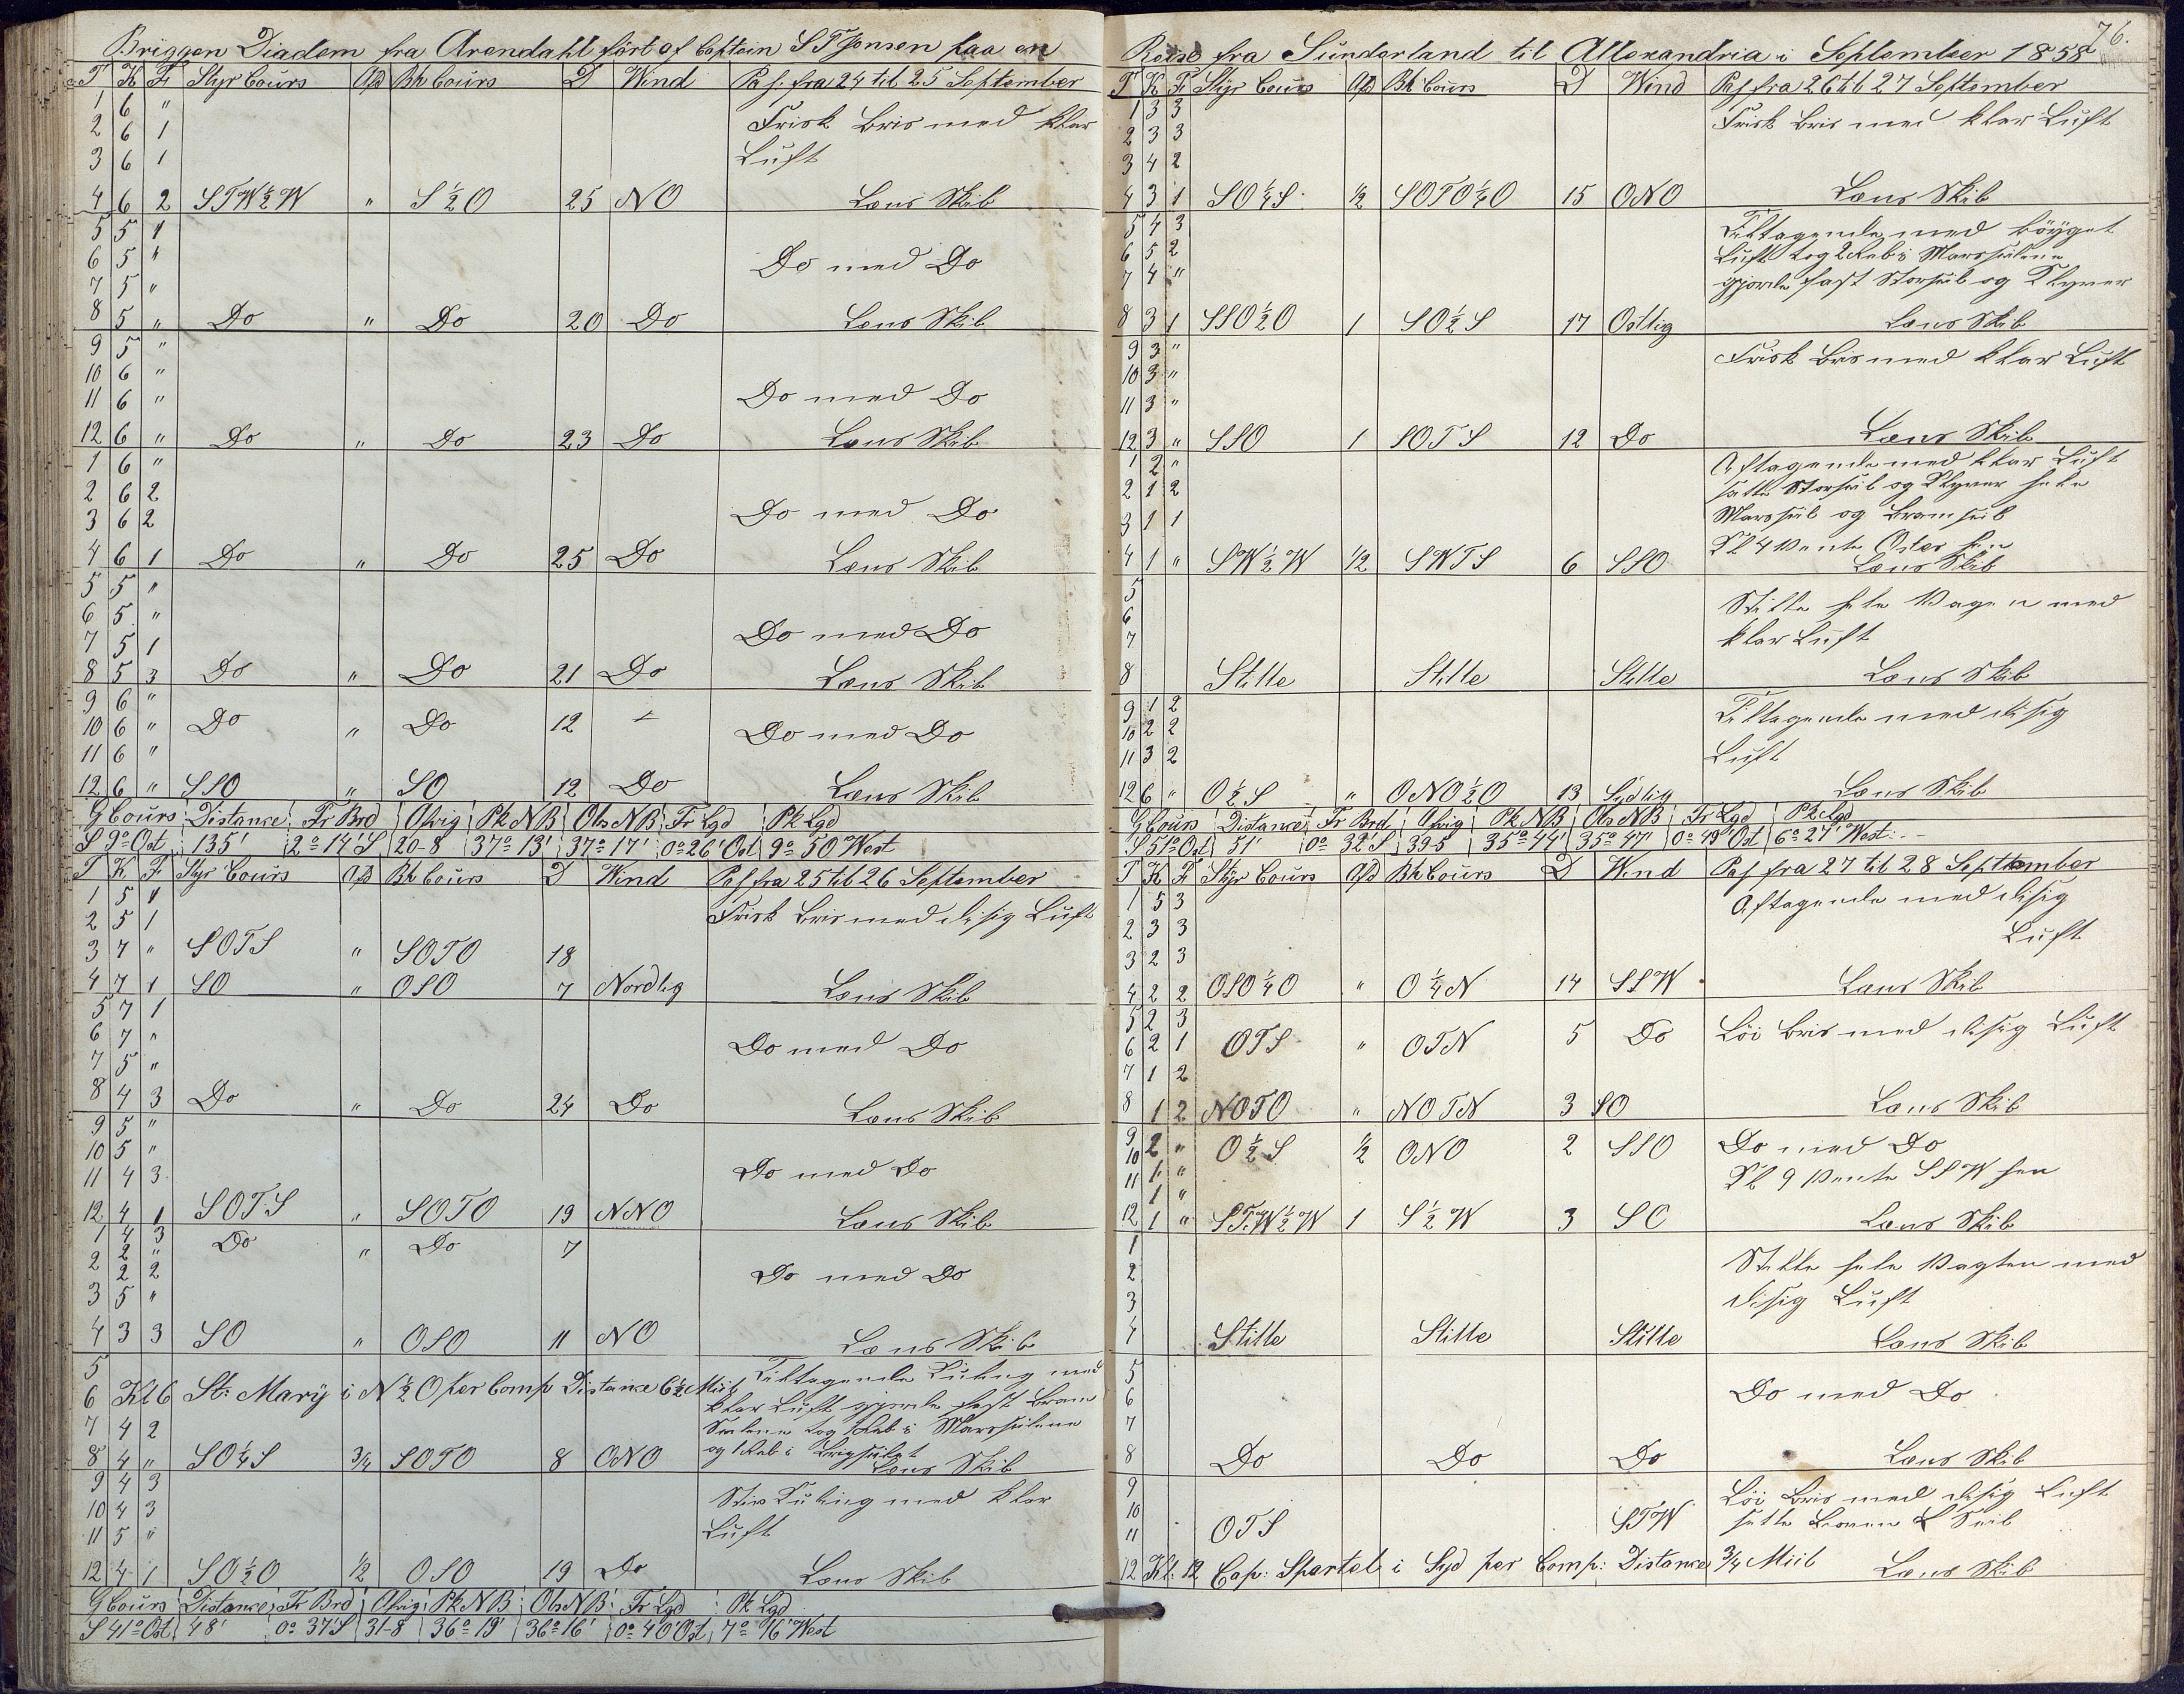 Briggen Diadem fra Arendahl ført af Captein S T Jonsen paa en
T K F Styr Cours Afd Bh Cours D Wind Pas. fra 24 til 25 September
1 6 "
2 6 1 Frisk Bris med klar
3 6 1 Luft
4 6 2 STW½W " S½O 25 NO Læns Skib
5 5 1
6 5 " Do med Do
7 5 "
8 5 " Do " Do 20 Do Læns Skib
9 5 "
10 6 "
11 6 " Do med Do
12 6 " Do " Do 23 Do Læns Skib
1 6 "
2 6 2
3 6 2 Do med Do
4 6 1 Do " Do 25 Do Læns Skib
5 5 "
6 5 "
7 5 1 Do med Do
8 5 3 Do " Do 21 Do Læns Skib
9 6 "
10 6 " Do " Do 12 Do med Do
11 6 "
12 6 " SSO " SO 12 Do Læns Skib
G Cours Distance Fr Brd Afvig Pk NB Obs NB Fr Lgd Pk Lgd
S 9° Ost 135' 2° 14' S 20-8 37° 13' 37° 17' 0° 26' Ost 9° 50 West
T K F Styr Cours Afd Bh Cours D Wind Pas fra 25 til 26 September
1 5 1
2 5 1 Frisk Bris med disig Luft
3 7 " SOTS " SOTO 18
4 7 1 SO " OSO 7 Nordlig Læns Skib
5 7 1
6 7 " Do med Do
7 5 "
8 4 3 Do " Do 24 Do Læns Skib
9 5 "
10 5 "
11 4 3 Do med Do
12 4 1 SOTS " SOTO 19 NNO Læns Skib
1 4 3 Do " Do 7
2 2 "
2 2 Do med Do
3 5 "
4 3 3 SO " OSO 11 NO Læns Skib
5 Tiltagende Kuling med
6 Kl 6 St: Mary i N½O per Comp Distance 6½ Miil klar Luft gjorde fast Bram
7 4 2 Seilene tog 1 Reb i Mersseilene
8 4 " SO¼S ¾ SOTO 8 ONO og 1 Reb i Brigseilet Læns Skib
9 4 3
10 4 3 Stiv Kuling med klar
11 5 " Luft
12 4 1 SO½O ½ OSO 19 Do Læns Skib
G Cours Distance Fr Brd Afvig Pk NB Obs NB Fr Lgd Pk Lgd
S 41° Ost 48' 0° 37' S 31-8 36° 19' 36° 16' 0° 40' Ost 7° 16' West
76.
Reise fra Sunderland til Allexandria i September 1858
T K F Styr Cours Afd Bh Cours D Wind Pas fra 26 til 27 September
1 3 3 Frisk Bris med klar Luft
2 3 3
3 4 2
4 3 1 SO¼S ½ SOTO¼O 15 ONO Læns Skib
5 4 3 Tiltagende med bøyget
6 5 2 Luft tog 2 Reb i Mersseilene
7 4 " gjorde fast Storseil og Klyver
8 3 1 SSO½O 1 SO½S 17 Ostlig Læns Skib
9 3 " Frisk Bris med klar Luft
10 3 "
11 3 "
12 3 " SSO 1 SOTS 12 Do Læns Skib
1 2 " Aftagende med klar Luft
2 1 2 satte Storseil og Klyver hele
3 1 1 Mersseil og Bramseil
Kl 4 vente Oster hen
4 1 " SW½W ½ SWTS 6 SSO Læns Skib
5
6 Stille hele Vagten med
7 klar Luft
8 Stille Stille Stille Læns Skib
9 1 2 Tiltagende med disig
10 2 2
11 3 2 Luft
12 6 " O½S " ONO½O 13 Sydlig Læns Skib
G Cours Distance Fr Brd Afvig Pk NB Obs NB Fr Lgd Pk Lgd
S 51° Ost 51' 0° 32' S 39-5 35° 44' 35° 47' 0° 49' Ost 6° 27' West
T K F Styr Cours Afd Bh Cours D Wind Pas fra 27 til 28 Septtember
1 5 3 Aftagende med disig
2 3 3 Luft
3 2 3
4 2 2 OSO¼O " O¼N 14 SSW Læns Skib
5 2 3
6 2 1 OTS " OTN 5 Do Löi Bris med disig Luft
7 1 2
8 1 2 NOTO " NOTN 3 SO Læns Skib
9 2 " O½S ½ ONO 2 SSO Do med Do
10 1 " Kl 9 vente SSW hen
11 1 "
12 1 " STW½W 1 S½W 3 SO Læns Skib
1
2 Stille hele Vagten med
3 disig Luft
4 Stille Stille Stille Læns Skib
5
6 Do med Do
7
8 Do Do Do Læns Skib
9 Löi Bris med disig Luft
10 STW satte Seil
11 OTS
12 Kl. 12 Cap: Spartel i Syd per Comp: Distance ¾ Miil Læns Skib